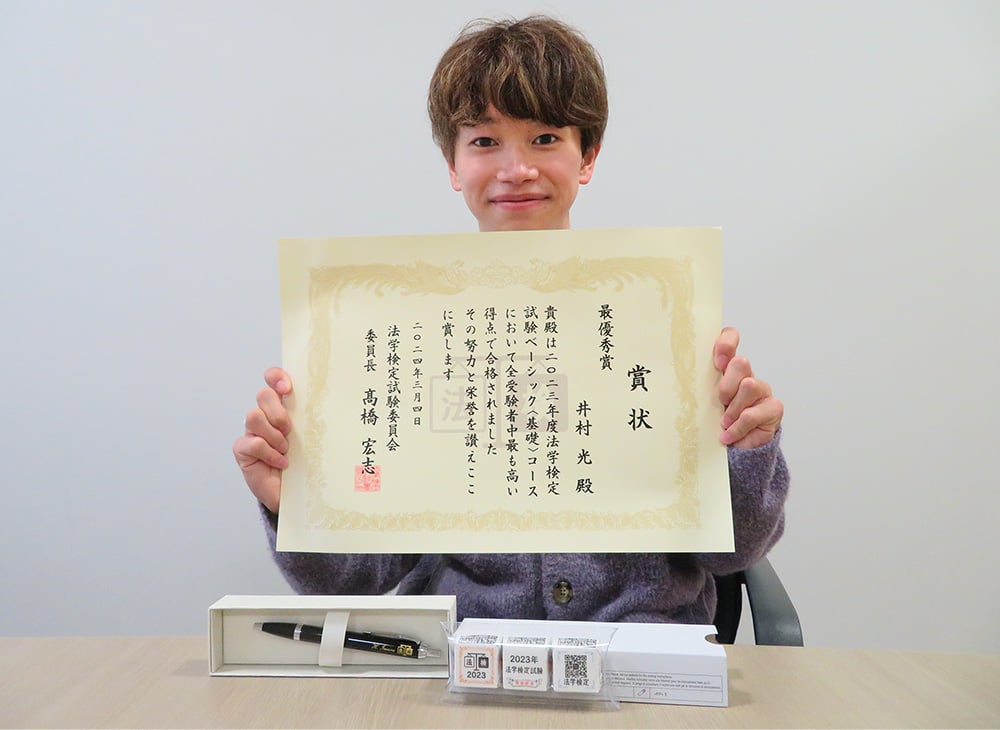 賞状
最優秀賞
井村 光 殿
貴殿は二〇二三年度法学検定
試験ベーシック〈基礎〉コース
において全受験者中最も高い
得点で合格されました
その努力と栄誉を讃えここ
に賞します
二〇二四年三月四日
法学検定試験委員会
委員長 高橋 宏志
法
法 検
2023
2023年
法学検定試験
法学検定